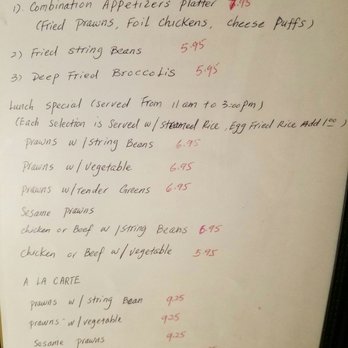 1). Combination Appetizers platter 7.95
(Fried prawns, Foil Chickens, cheese Puffs)
2) Fried String Beans 5.95
3) Deep Fried Broccolis 5.95
Lunch special (served From 11am to 3:00pm)
(Each Selection is Served w/steamed Rice, Egg Fried Rice Add 1.00)
prawns w/string Beans 6.95
Prawns w/vegetable 6.95
prawns w/Tender Greens 6.95
Sesame prawns
chicken or Beef w/string Beans 6.95
chicken or Beef w/vegetable 5.95
A LA CARTE
prawns w/string Bean 9.25
prawns w/vegetable 9.25
Sesame prawns 9.25